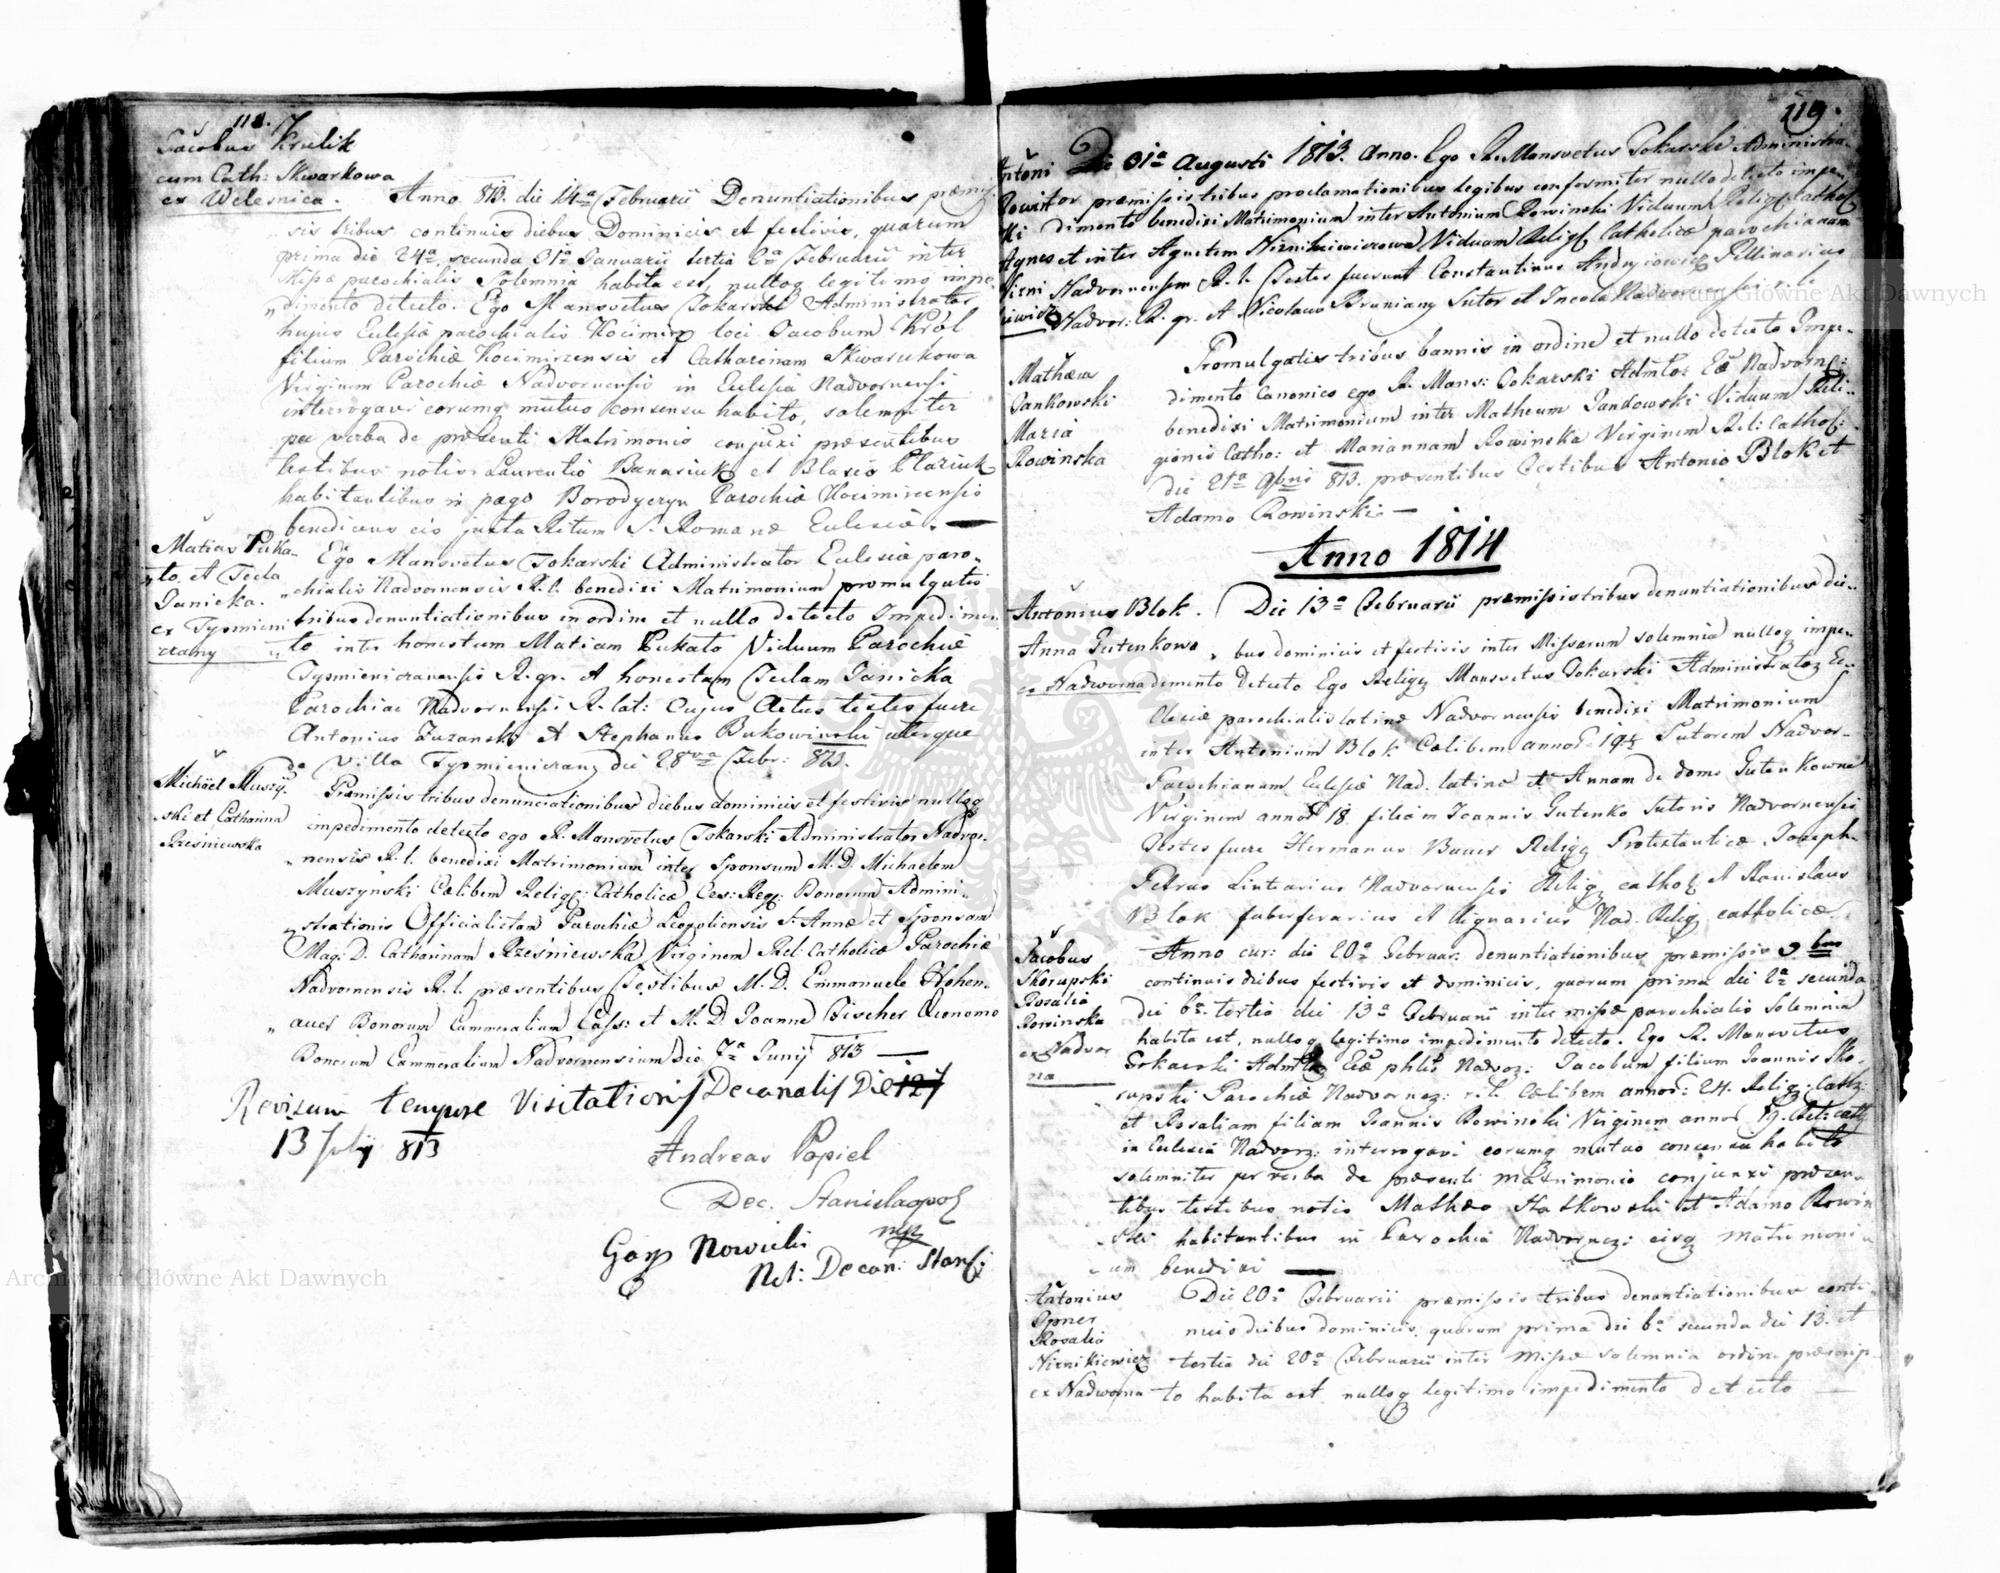 118.
Jacobus Krulik
cum Cath: Skwarkowa
ex Welesnica.
Anno 813. die 14a Februarii Denuntiationibus præmis-
sis tribus continuis diebus Dominicis et festivis, quarum
prima die 24a, secunda 31a Januarii tertia 2a Februarii inter
Missæ parochialis solemnia habita est, nulloq legitimo impe-
dimento detecto. Ego Mansvetus Tokarski Administrator
hujus Eclesiæ parochialis loci Jacobum Król
filium Parochiæ Kocimirzensis et Catharinam Skwarukowa
Virginem Parochiæ Nadvornensis in Eclesia Nadvornensi
interrogavi eorumq mutuo consensu habito, solemniter
per verba de præsenti Matrimonio conjunxi præsentibus
testibus notis Laurentio Banasiuk et Blasio
habitantibus in pago Parochiæ
benedicens eis juxta Ritum S. Romanæ Eclesiæ.
Matias Puka-
to. et Tecla
Janicka.
ex Tysmieni
czany
Ego Mansvetus Tokarski Administrator Eclesiæ paro-
chialis Nadvornensis R. l. benedixi Matrimonium promulgatis
tribus denuntiationibus in ordine et nullo detecto Impedimen-
to inter honestum Matiam Pukato Viduum Parochiæ
Tysmieniczanensis R. gr. et honestam Teclam Janicka
Parochiae Nadvornensis R. lat: Cujus Actus testes fuere
Antonius Zuzanski et Stephanus Bukowinski uterque
de Villa Tysmieniczany die 28va Febr: 813.
Michael Muszyń-
ski et Catharina
Rześniewska
Præmissis tribus denunciationibus diebus dominicis et festivis nulloq
impedimento detecto ego R. Mansvetus Tokarski Administrator Nadvor-
nensis R. l. benedixi Matrimonium inter Sponsum M. D. Michaelem
Muszyński Cælibem Relig: Catholicæ Ces: Reg: Bonorum Admini-
strationis Officialistam Parochiæ Leopoliensis S. Annæ et Sponsam
Mag: D. Catharinam Rześniewska Virginem Rel: Catholicæ Parochiæ
Nadvornensis R. l. præsentibus Testibus M. D. Emmanuele Hohen-
auer Bonorum Cammeralium Cass: et M. D. Joanne Fischer Œconomo
Bonorum Cammeralium Nadvornensium die 7a Junij 813
Revisum tempore Visitationis Decanalis Die 127
13 July 813
Andreas Popiel
Dec. Stanislaopol
mp
Nowicki
Not: Decan: Stanis:
119.
Antoni
Rowiń
ski
Agnes
Nirni
kiewicz
Die 31a Augusti 1813. Anno. Ego R. Mansvetus Tokarski Administra-
tor præmissis tribus proclamationibus legibus conformiter nullo detecto impe-
dimento benedixi Matrimonium inter Antonium Rowinski Viduum Relig: Cathol:
et inter Agnetem Nirnikiewiczowa Viduam Relig Catholicæ parochianam
Nadvornensem R. l. Testes fuerunt Constantinus Andryiowicz Pellinarius
Nadvor: R. gr. et Nicolaus Bruniany Sutor et Incola Nadvornen
Mathæus
Jankowski
Maria
Rowinska
Promulgatis tribus bannis in ordine et nullo detecto Impe-
dimento Canonico ego R. Mans: Tokarski Admtor Eæ Nadvorn:
benedixi Matrimonium inter Matheum Jankowski Viduum Reli-
gionis Catho: et Mariannam Rowinska Virginem Rel: Cathol:
die 21a 9bris 813. præsentibus Testibus Antonio Blok et
Adamo Rowinski
Anno 1814
Antonius Blok.
Anna Gutenkowa
ex Nadworna
Die 13a Februarii præmissis tribus denuntiationibus die-
bus dominicis et festivis inter Missarum solemnia nulloq impe-
dimento detecto Ego Relig Mansvetus Tokarski Administrator Ec-
clesiæ parochialis latinæ Nadvornensis benedixi Matrimonium
inter Antonium Blok Cælibem annor 19½ Sutorem Nadvor-
Parochianum Eclesiæ Nad. latinæ et Annam de domo Gutenkowne
Virginem annor 18 filiam Joannis Gutenko Sutoris Nadvornensis
Testes fuere Hermanus Bauer Relig Protestanticæ Joseph-
Petrus Nadvornensis Relig cathol et Stanislaus
Blok faberferarius et lignarius Nad. Relig catholicæ
Jacobus
Skorupski
Rosalia
Rowinska
ex Nadvor
na
Anno cur: die 20a Februar: denuntiationibus præmissis 3bus
continuis diebus festivis et dominicis, quarum prima die 2a secunda
die 6a tertia die 13a Februarii inter missæ parochialis solemnia
habita est, nulloq legitimo impedimento detecto. Ego R. Mansvetus
Tokarski Admtor Eæ phlis Nadvor: Jacobum filium Joannis Sko-
rupski Parochiæ Nadvornez: r. l. Cælibem annor: 24. Relig: Cath:
et Rosaliam filiam Joannis Rowinski Virginem annor 19. Rel: cath
in Eclesia Nadvorz: interrogavi eorumq mutuo concensu habito
solemniter per verba de præsenti matrimonio conjunxi præsen-
tibus testibus notis Mathæo Hatkowski et Adamo Rowin
ski habitantibus in Parochia Nadvornezi eisq matrimoni
um benedixi
Antonius
Opner
Rosalia
Nirnikiewicz
ex Nadworna
Die 20a Februarii præmissis tribus denuntiationibus conti-
nuis diebus dominicis, quarum prima die 6a secunda die 13. et
tertia die 20a Februarii inter Missæ solemnia ordine præscrip-
to habita est nulloq legitimo impedimento detecto
Archiwum Główne Akt Dawnych
Archiwum Główne Akt Dawnych